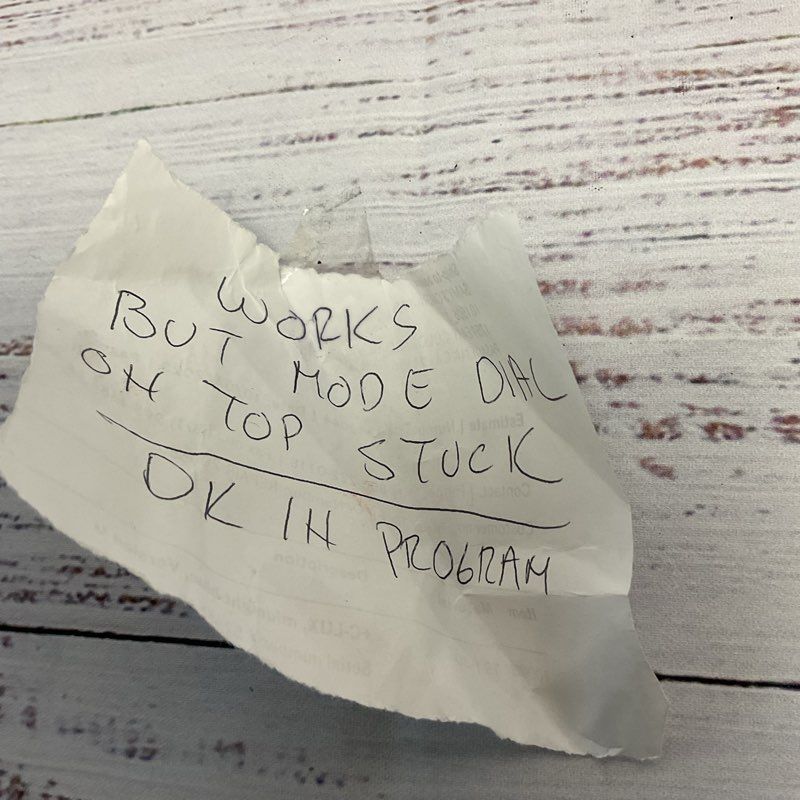 WORKS
BUT MODE DIAL
ON TOP STUCK
OK IN PROGRAM